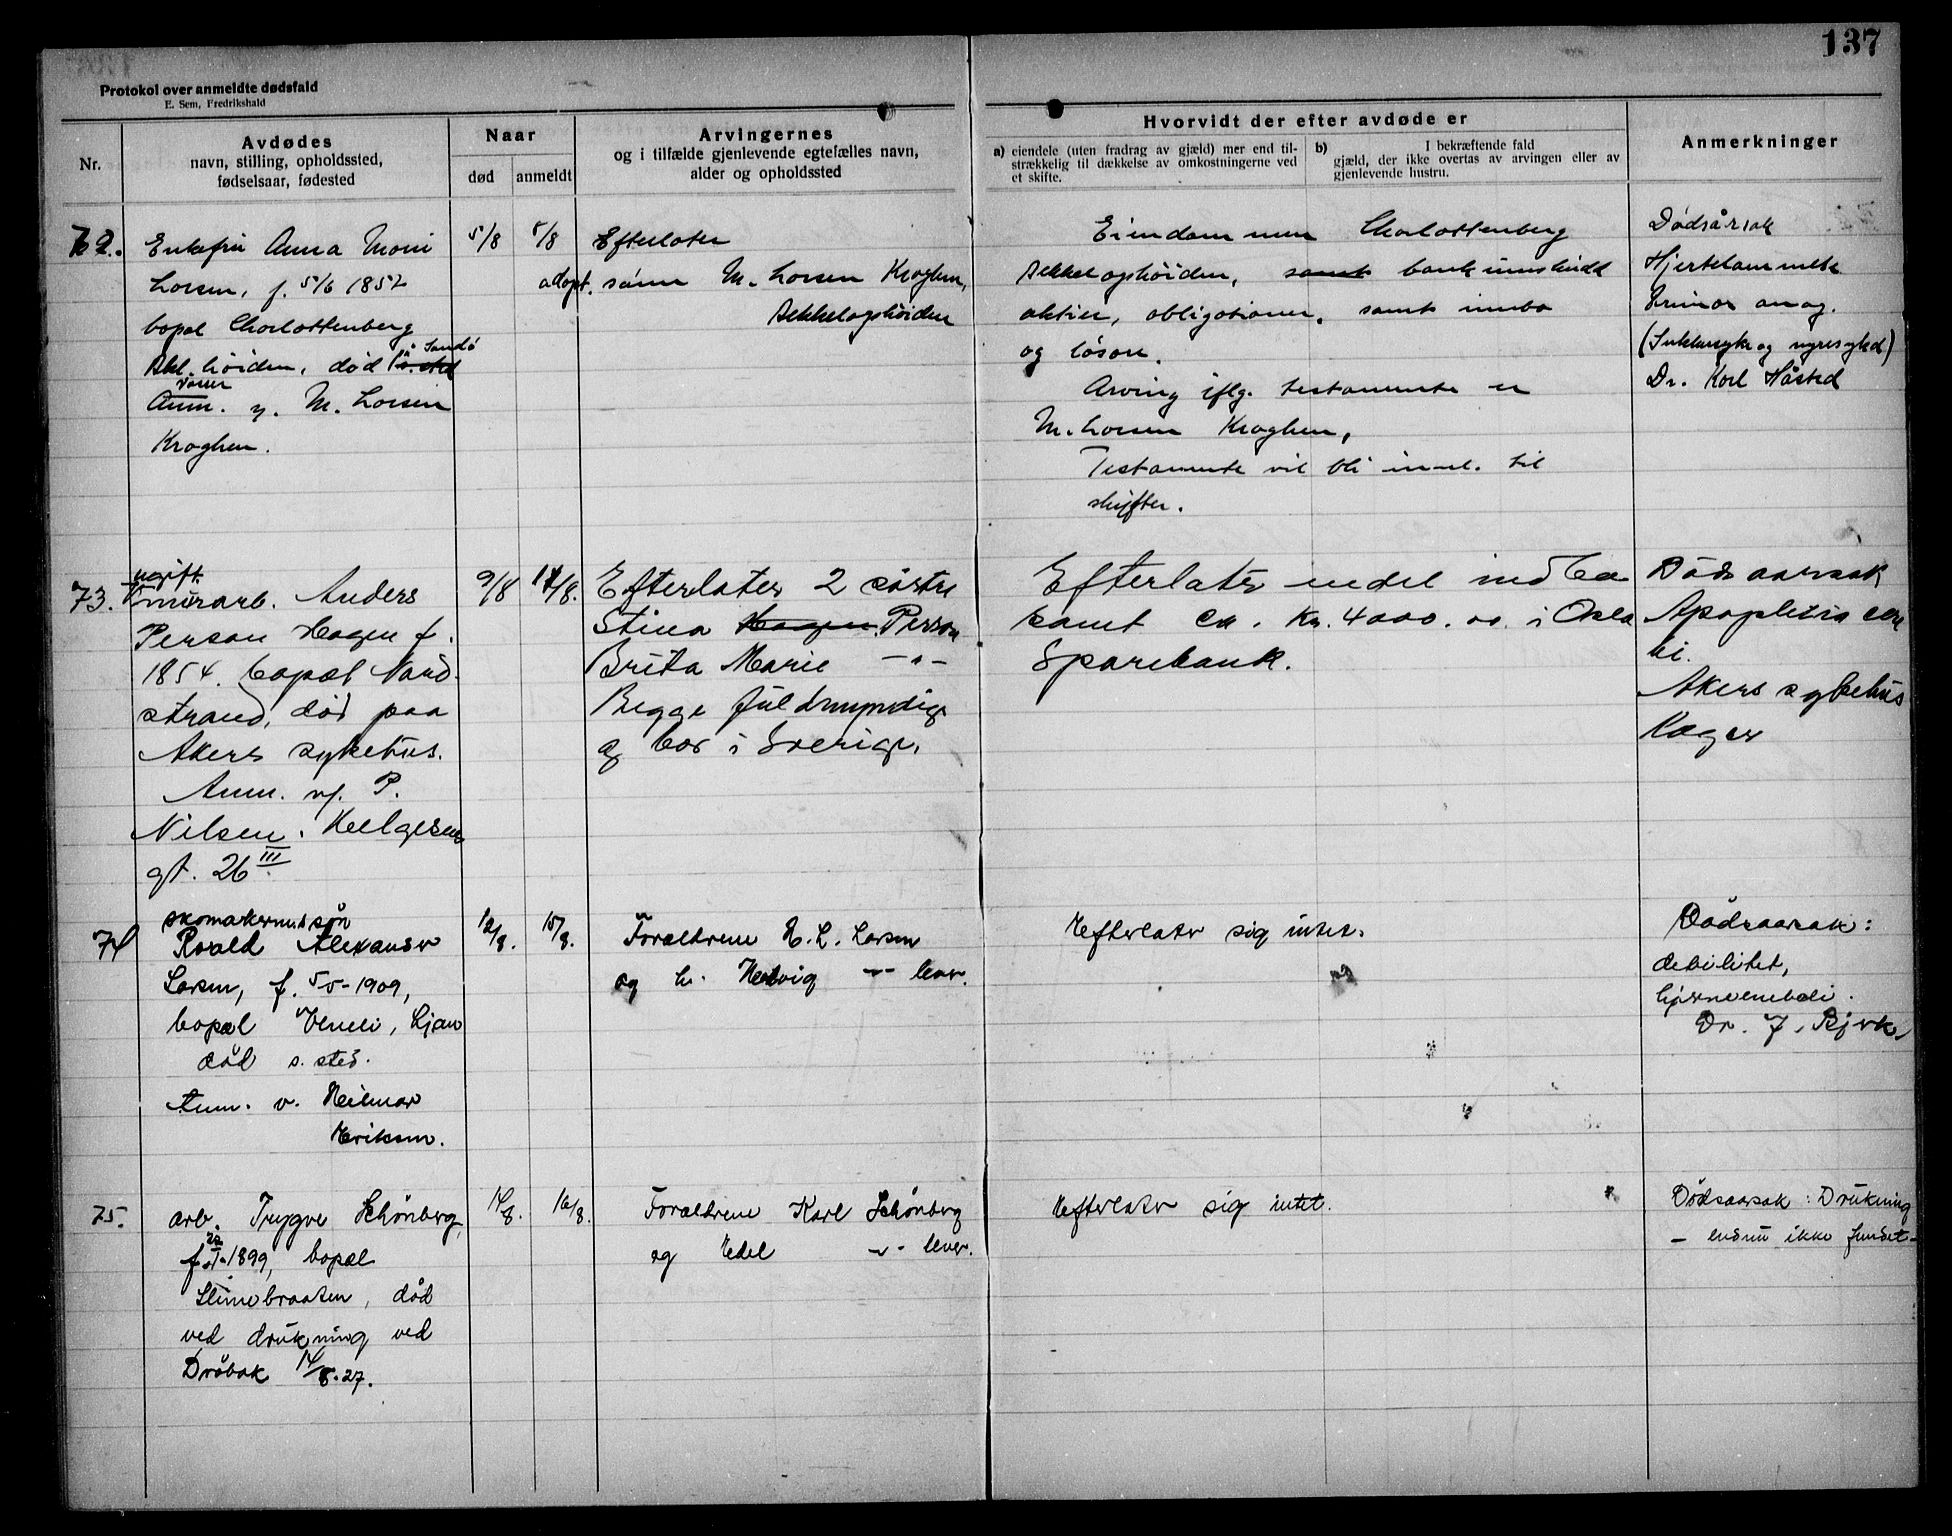 137
Protokol over anmeldte dødsfald
E. Sem, Fredrikshald
Nr.
Avdødes
navn, stilling, opholdssted,
fødselsaar, fødested
Naar
død
anmeldt
Arvingernes
og i tilfælde gjenlevende egtefælles navn,
alder og opholdssted
Hvorvidt der efter avdøde er
a) eiendele (uten fradrag av gjæld) mer end til-
strækkelig til dækkelse av omkostningerne ved
et skifte.
b) I bekræftende fald
gjæld, der ikke overtas av arvingen eller av
gjenlevende hustru.
Anmerkninger
72.
Enkefru Anna Marie
Larsen, f. 5/6 1852
bopæl Charlottenberg
høiden, død på Sandø
Anm. v. M. Larsen
Kroghen.
5/8
5/8
Efterlater
adopt. sønn M. Larsen Kroghen,
Bekkelagshøiden
Eiendommen Charlottenberg
Bekkelagshøiden, samt bankinnskudd
aktier, obligationer, samt innbo
og løsøre.
Arving iflg. testamente er
M. Larsen Kroghen,
Testamente vil bli innl. til
skifter.
Dødsårsak
Hjertelammelse
(Sukkersyke og nyresykd)
Dr. Karl Håsted
73.
ugift
murarb. Anders
Person Hagen f.
1854. bopæl Nord-
strand, død paa
Akers sykehus.
Anm. v. P.
Nilsen. Helgesens
gt. 26 III
9/8
17/8.
Efterlater 2 søstre
Stina Hagen Person
Brita Marie -"-
Begge fuldmyndige
og bor i Sverige.
Efterlater endel indbo
samt ca. Kr. 4000.00 i Oslo
Sparebank.
Dødsaarsak
Apoplexia cere
bri.
Akers sykehus
Kager
74
skomakersvend søn
Roald Alexander
Larsen, f. 5/5-1909,
bopæl Utneli, Ljan
død s. sted.
Anm. v. Heilmar
Eriksen.
12/8.
15/8.
Forældrene E. L. Larsen
og h. Hedvig -"- lever.
Efterlater sig intet.
Dødsaarsak:
debilitet,
hjerneemboli.
Dr. J. Bjerke
75.
arb. Trygve Schønberg,
f. 22/1-1899, bopæl
Slimebraaten, død
ved drukning ved
Drøbak 14/8.27.
14/8.
16/8.
Forældrene Karl Schønberg
og Edel -"- lever.
Efterlater sig intet.
Dødsaarsak: Drukning
- endnu ikke fundet -